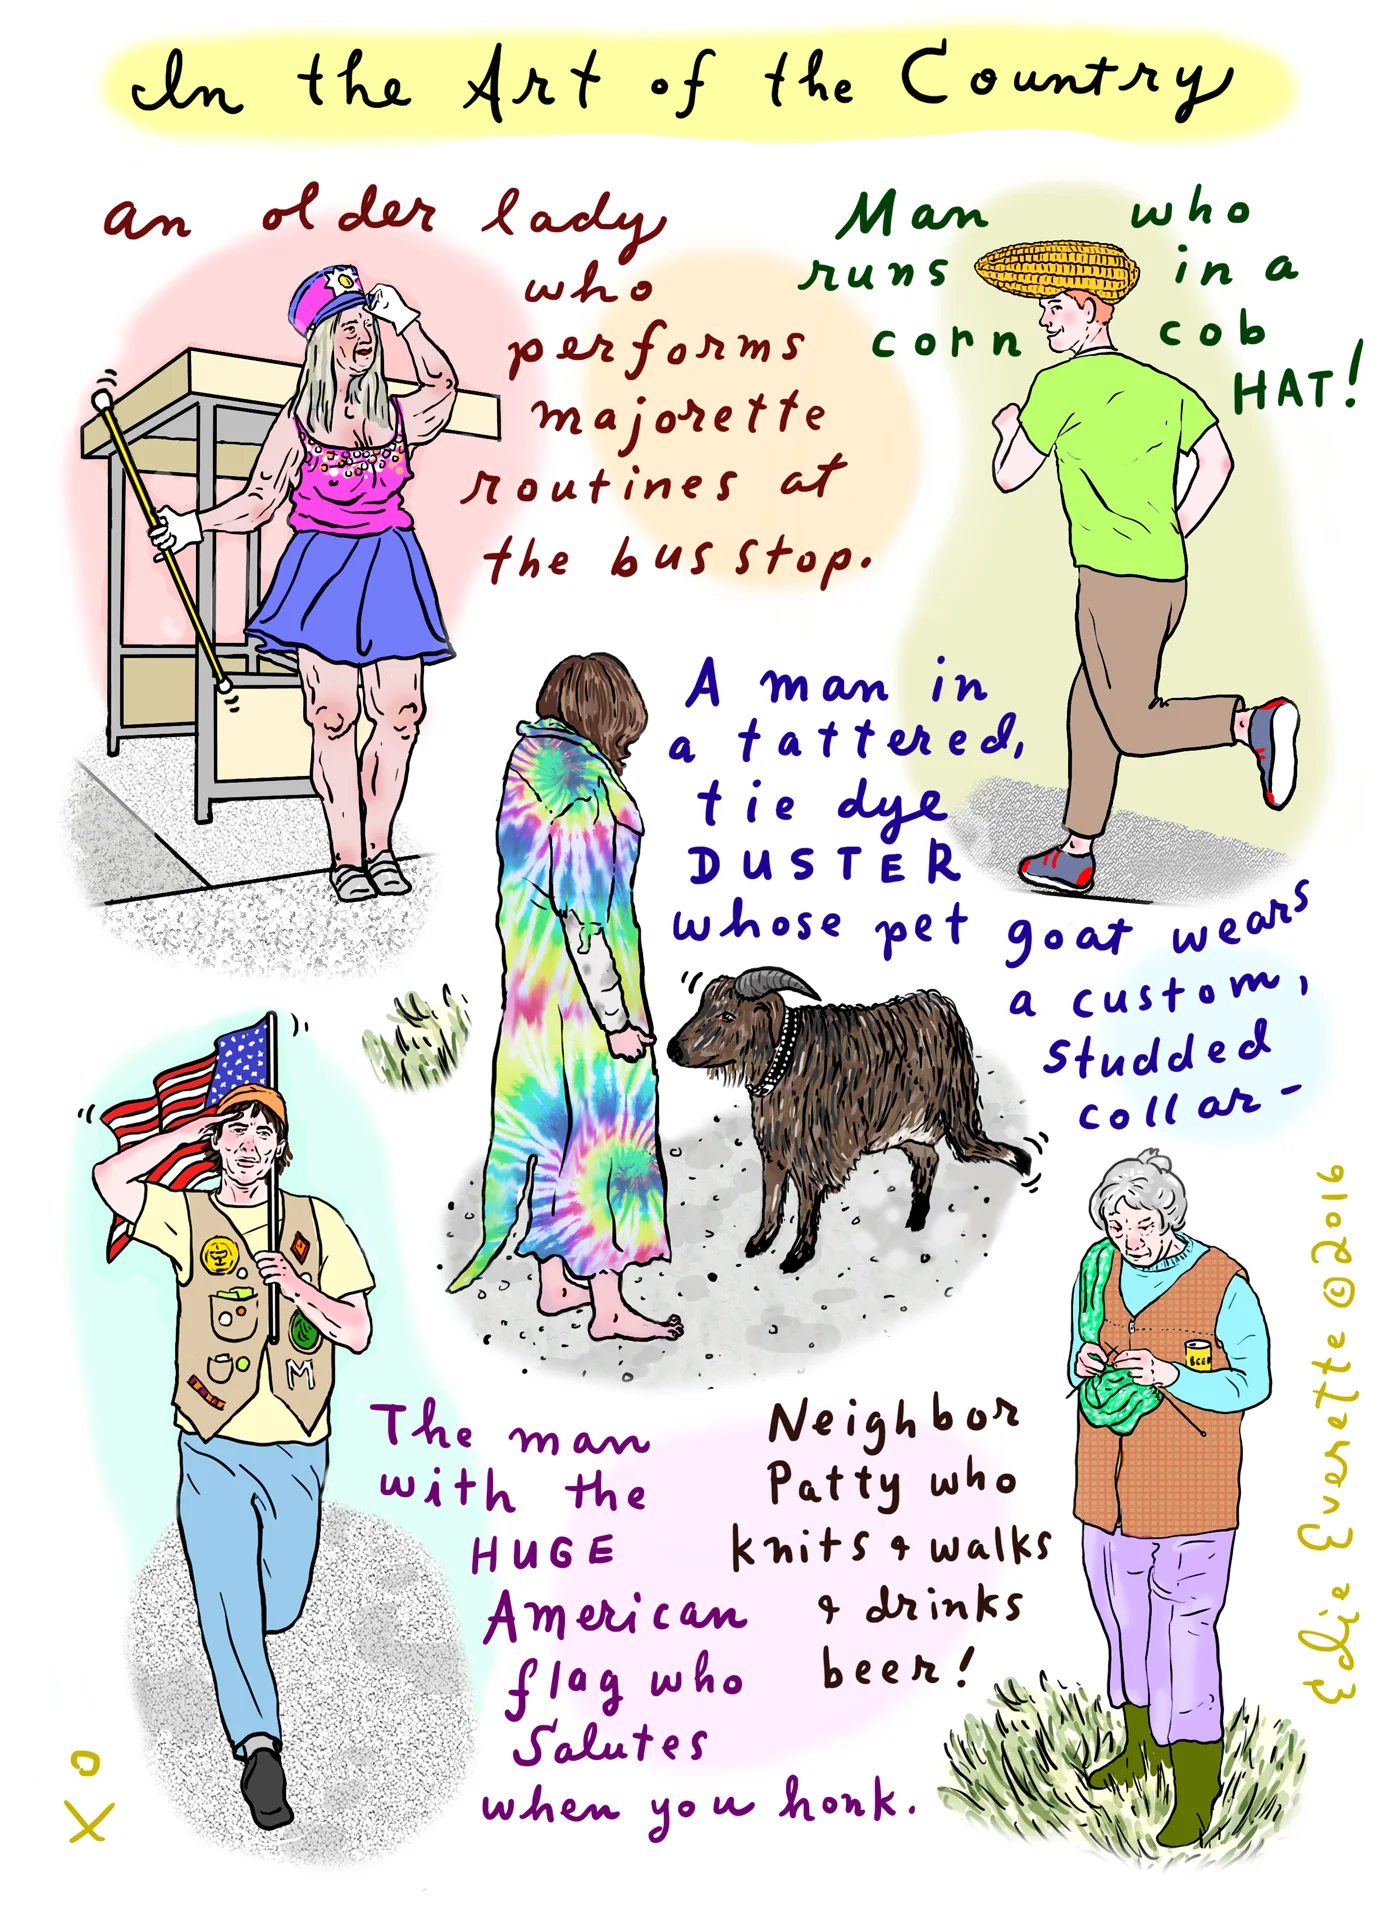 In the Art of the Country
an older lady
who
performs
majorette
routines at
the bus stop.
Man who
runs in a
corn cob
HAT!
A man in
a tattered,
tie dye
DUSTER
whose pet goat wears
a custom,
studded
collar-
The man
with the
HUGE
American
flag who
Salutes
when you honk.
M
Neighbor
Patty who
knits & walks
& drinks
beer!
BEER
Edie Everette ©2016
XO